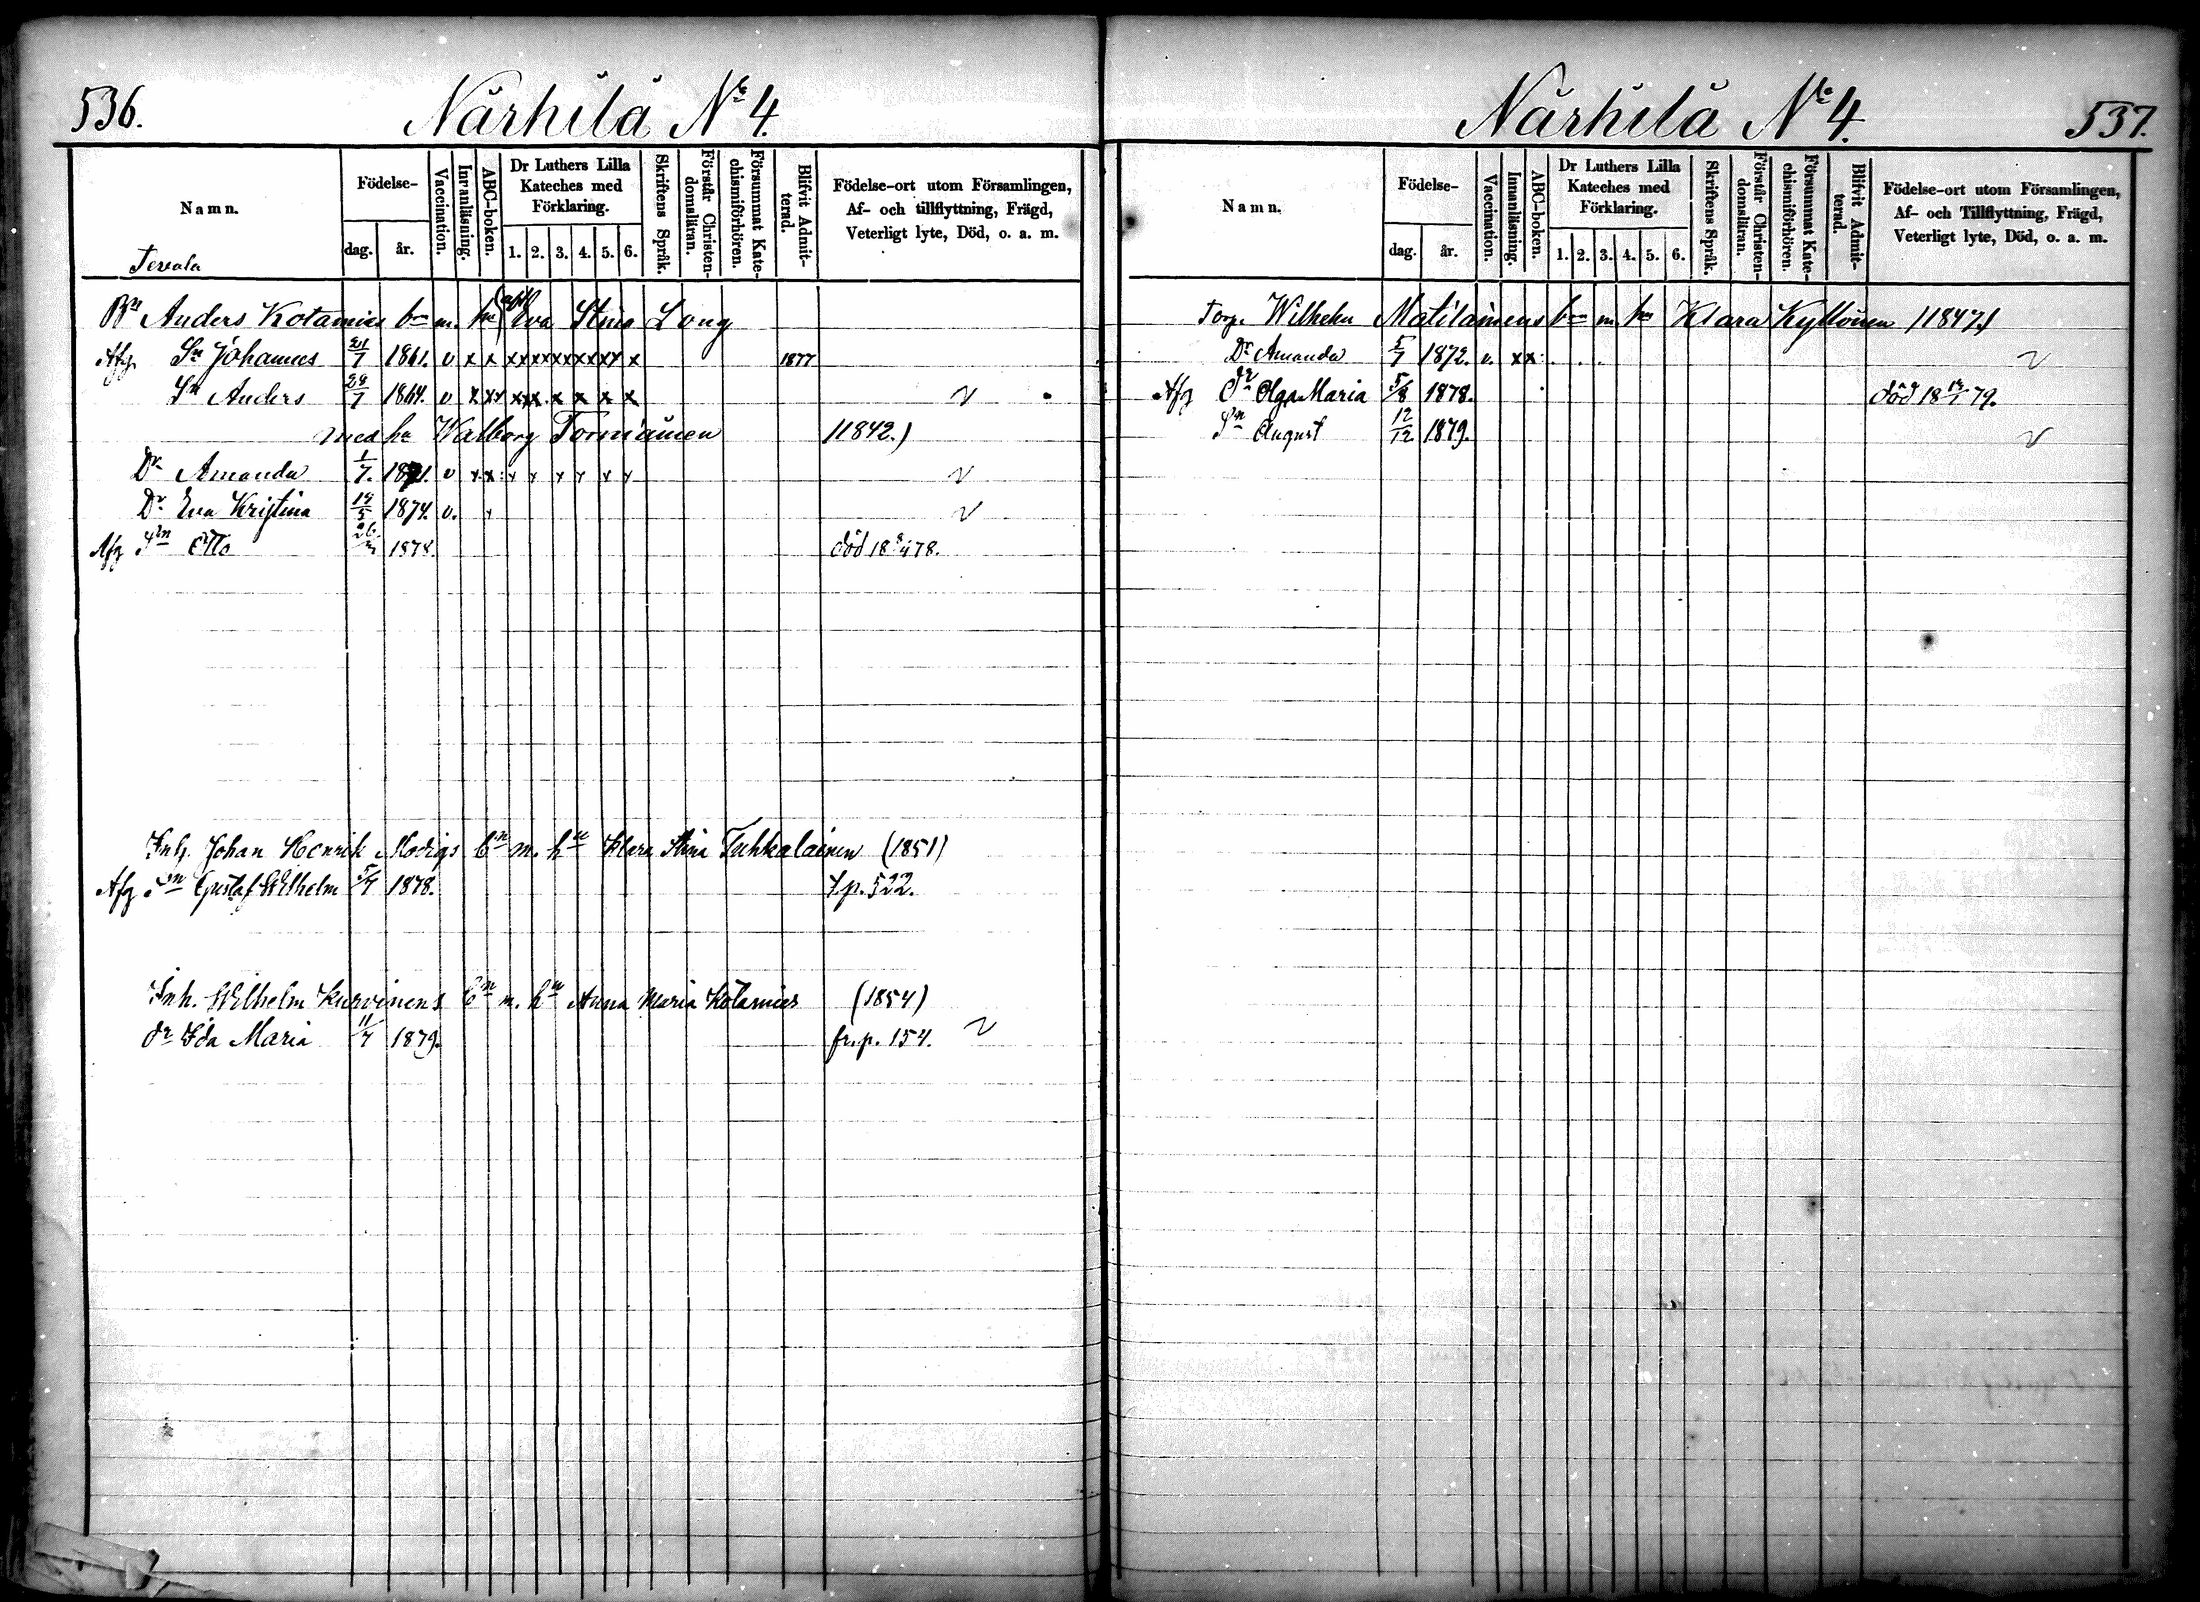 536.
Närhilä No 4.
Namn.
Födelse-
dag. år.
Vaccination.
Innanläsning.
ABC-boken.
Dr Luthers Lilla Kateches med Förklaring.
1. 2. 3. 4. 5. 6.
Skriftens Språk.
Förstår Christen-domsläran.
Försummat Kate-chismiförhören.
Blifvit Admit-terad.
Födelse-ort utom Församlingen,
Af- och tillflyttning, Frägd,
Veterligt lyte, Död, o. a. m.
Bn Anders Kotamies bn m. hu Eva Stina Long
Afg Sn Johannes 1861. v x x x x x x x x x x x x 1877
Sn Anders 29/7 1864. v x x x x x x x x x x v
med hu Walborg Tormäinen 11842.)
Dr Amanda 1/7. 1871. v x x x x x x x x v
Dr Eva Kristina 1874. v. v
Afg Sn Otto 1878. död 18 8/4 78.
Inh. Johan Henrik Modigs bn m. hu Klara Stina Tuhkalainen (1851)
Afg Sn Gustaf Wilhelm 5/7 1878. t.p. 522.
Inh. Wilhelm Kurvinens bn m. hu Anna Maria Kotamies (1854)
dr Ida Maria 11/7 1879. fr. p. 154. v
Närhilä No 4.
537.
Namn.
Födelse-
dag. år.
Vaccination.
Innanläsning.
ABC-boken.
Dr Luthers Lilla Kateches med Förklaring.
1. 2. 3. 4. 5. 6.
Skriftens Språk.
Förstår Christen-domsläran.
Försummat Kate-chismiförhören.
Blifvit Admit-terad.
Födelse-ort utom Församlingen,
Af- och Tillflyttning, Frägd,
Veterligt lyte, Död, o. a. m.
Torp. Wilhelm Matilainens bn m hu Klara Kyllönen 11847)
Dr Amanda 5/7 1872. v. x x v
Afg Dr Olga Maria 5/8 1878. död 18 79.
Sn August 12/12 1879. v